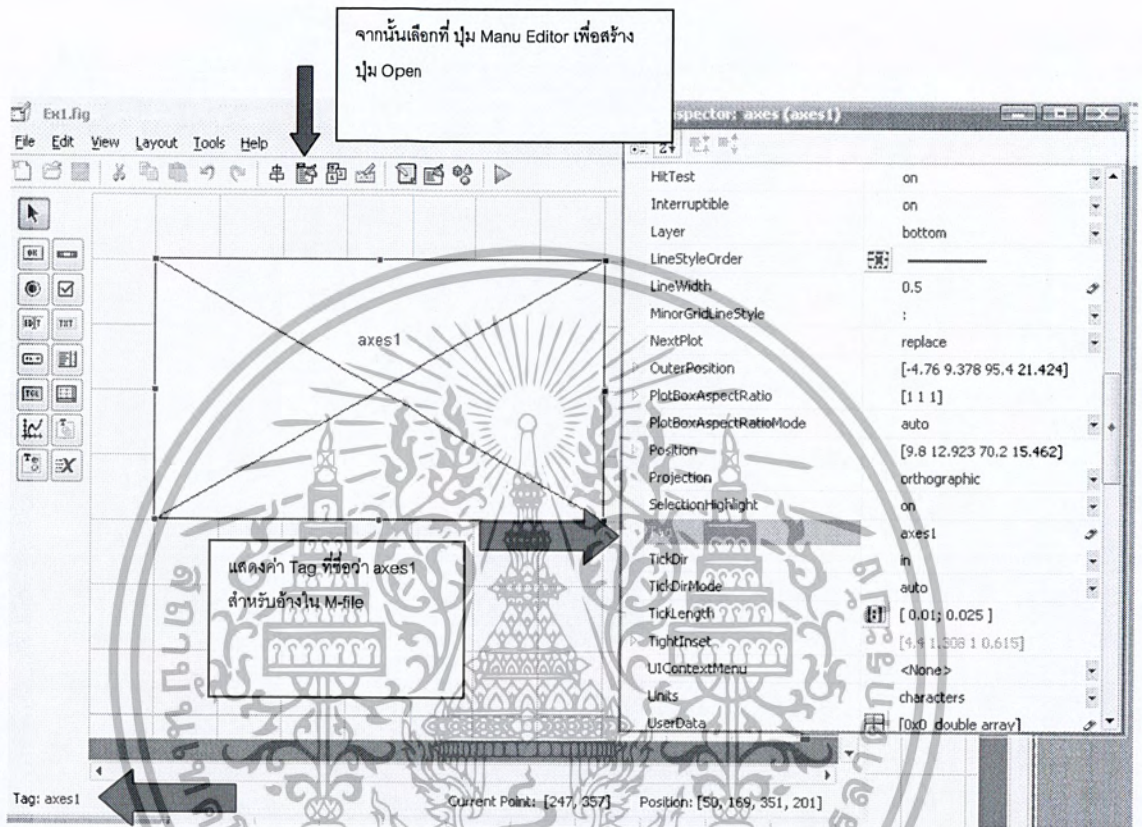 จากนั้นเลือกที่ ปุ่ม Manu Editor เพื่อสร้าง
ปุ่ม Open
Ex1.fig
File Edit View Layout Tools Help
axes1
แสดงค่า Tag ที่ชื่อว่า axes1
สำหรับอ้างใน M-file
Tag: axes1
Current Point: [247, 357] Position: [50, 169, 351, 201]
spector: axes (axes1)
HitTest on
Interruptible on
Layer bottom
LineStyleOrder
LineWidth 0.5
MinorGridLineStyle :
NextPlot replace
OuterPosition [-4.76 9.378 95.4 21.424]
PlotBoxAspectRatio [1 1 1]
PlotBoxAspectRatioMode auto
Position [9.8 12.923 70.2 15.462]
Projection orthographic
SelectionHighlight on
axes1
TickDir in
TickDirMode auto
TickLength [ 0.01; 0.025 ]
TightInset [4.4 1.308 1 0.615]
UIContextMenu <None>
Units characters
UserData [0x0 double array]